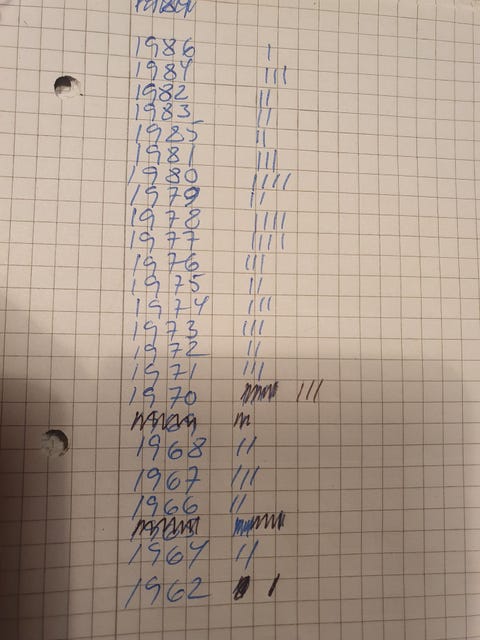 1986 |
1984 |||
1982 ||
1983 ||
1985 ||
1981 |||
1980 ||||
1979 ||
1978 ||||
1977 ||||
1976 |||
1975 ||
1974 |||
1973 |||
1972 ||
1971 |||
1970 |||
1968 ||
1967 |||
1966 ||
1964 ||
1962 |